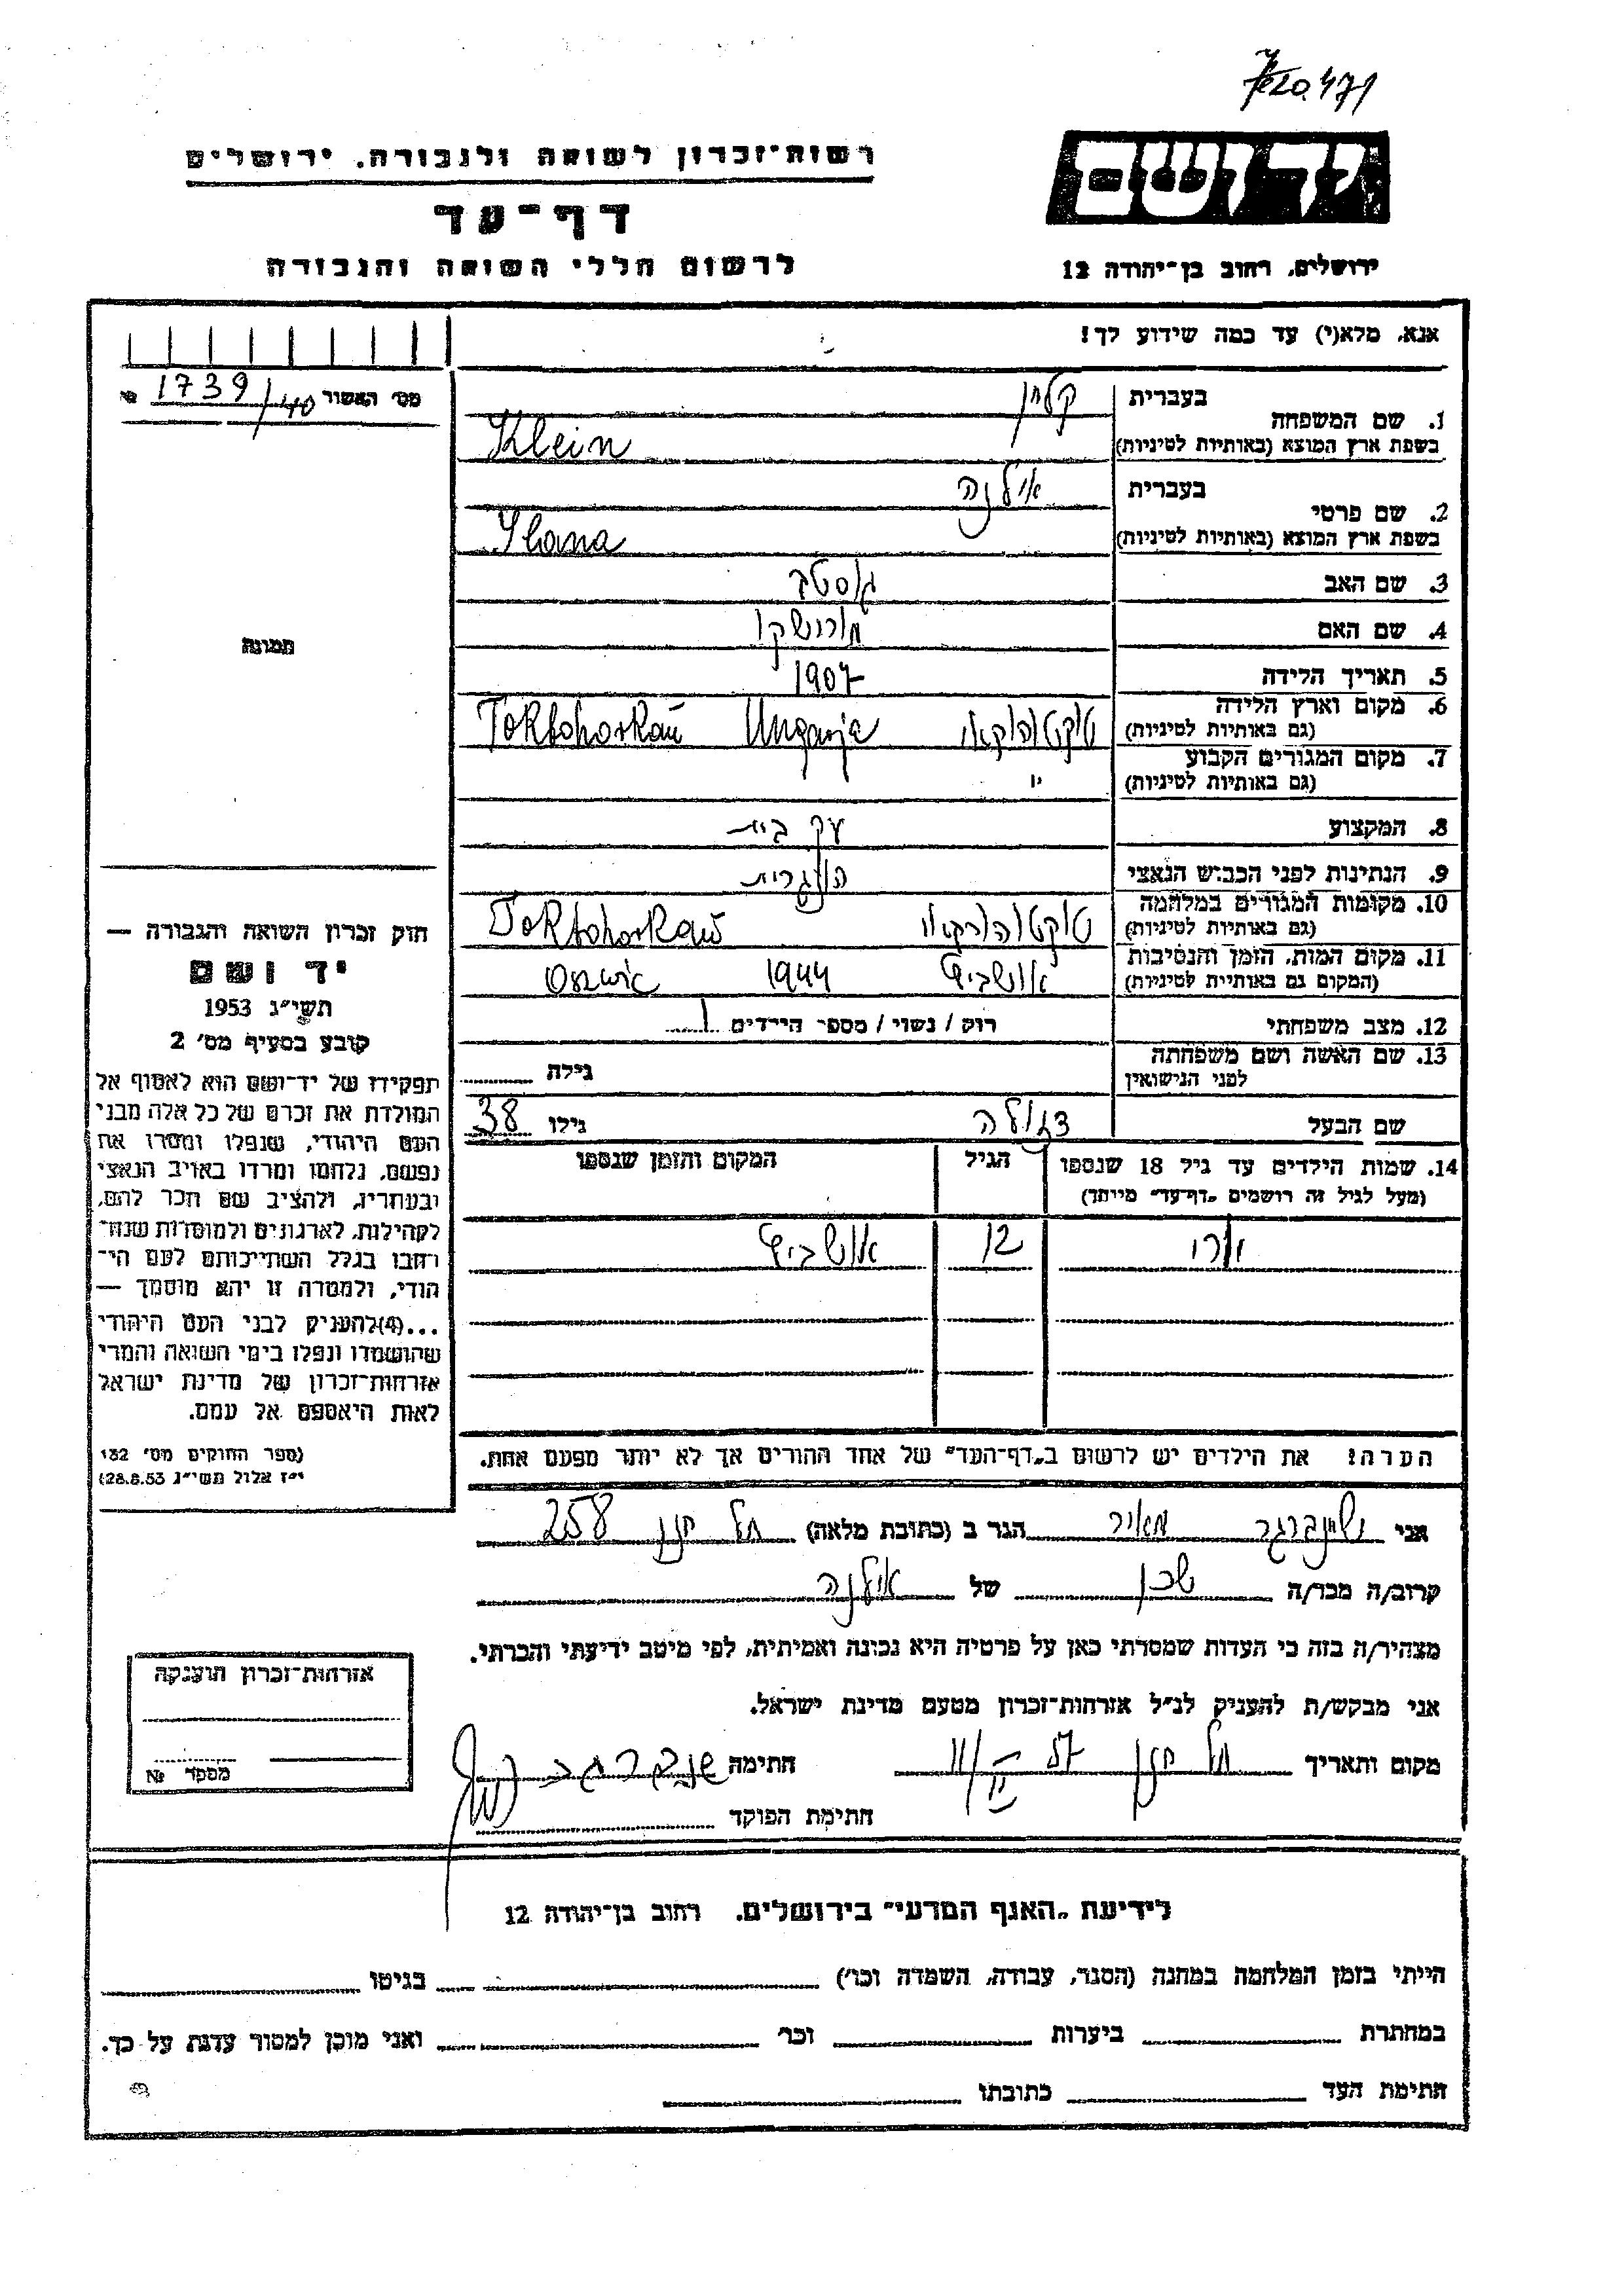 רשות־זכרון לשואה ולגבורה. ירושלים
דף־עד
לרשום חללי השואה והגבורה
יד ושם
ירושלים, רחוב בן־יהודה 12
אנא, מלא(י) עד כמה שידוע לך!
מס׳ האשור 1739/40 №
בעברית קליין
1. שם המשפחה
בשפת ארץ המוצא (באותיות לטיניות) Klein
בעברית אילנה
2. שם פרטי
בשפת ארץ המוצא (באותיות לטיניות) Ilana
3. שם האב גוסטב
4. שם האם
5. תאריך הלידה 1907
6. מקום וארץ הלידה
(גם באותיות לטיניות) Ungarja
7. מקום המגורים הקבוע
(גם באותיות לטיניות) "
8. המקצוע עק בית
9. הנתינות לפני הכבוש הנאצי הונגרית
10. מקומות המגורים במלחמה
(גם באותיות לטיניות)
11. מקום המות, הזמן והנסיבות
(המקום גם באותיות לטיניות) אושביץ 1944
12. מצב משפחתי רוק / נשוי / מספר הילדים 1
13. שם האשה ושם משפחתה
לפני הנישואין גילה
שם הבעל גילו 38
14. שמות הילדים עד גיל 18 שנספו הגיל המקום והזמן שנספו
(מעל לגיל זה רושמים „דף־עד" מיוחד)
12 אושביץ
הערה: את הילדים יש לרשום ב„דף־העד" של אחד ההורים אך לא יותר מפעם אחת.
תמונה
חוק זכרון השואה והגבורה —
יד ושם
תשי״ג 1953
קובע בסעיף מס׳ 2
תפקידו של יד־ושם הוא לאסוף אל
המולדת את זכרם של כל אלה מבני
העם היהודי, שנפלו ומסרו את
נפשם, נלחמו ומרדו באויב הנאצי
ובעוזריו, ולהציב שם וזכר להם,
לקהילות, לארגונים ולמוסדות שנח־
רבו בגלל השתייכותם לעם הי־
הודי, ולמטרה זו יהא מוסמך —
...(4) להעניק לבני העם היהודי
שהושמדו ונפלו בימי השואה והמרי
אזרחות־זכרון של מדינת ישראל
לאות היאספם אל עמם.
(ספר החוקים מס׳ 132
י״ז אלול תשי״ג 28.8.53)
אני מאיר הגר ב (כתובת מלאה) 258
קרוב/ה מכר/ה שכן של אילנה
מצהיר/ה בזה כי העדות שמסרתי כאן על פרטיה היא נכונה ואמיתית, לפי מיטב ידיעתי והכרתי.
אני מבקש/ת להעניק לנ״ל אזרחות־זכרון מטעם מדינת ישראל.
מקום ותאריך חתימה
חתימת הפוקד
אזרחות־זכרון הוענקה
מספר №
לידיעת „האגף המדעי" בירושלים. רחוב בן־יהודה 12
הייתי בזמן המלחמה במחנה (הסגר, עבודה, השמדה וכו׳) בגיטו
במחתרת ביערות וכו׳ ואני מוכן למסור עדות על כך.
חתימת העד כתובתו